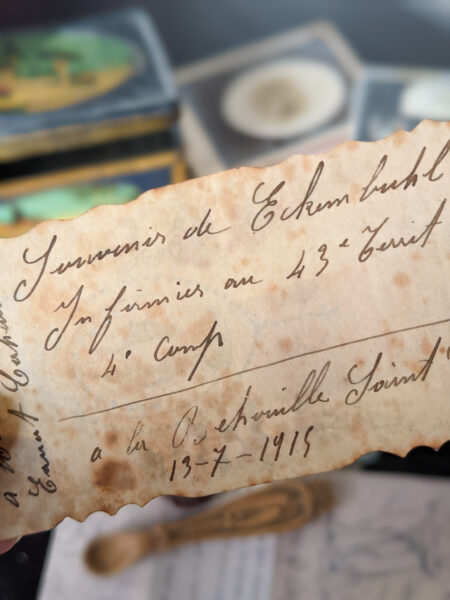 Souvenir de Eckembuhl
Infirmier au 43e Territ
4e Comp
a la Behouille Saint
13-7-1915
a